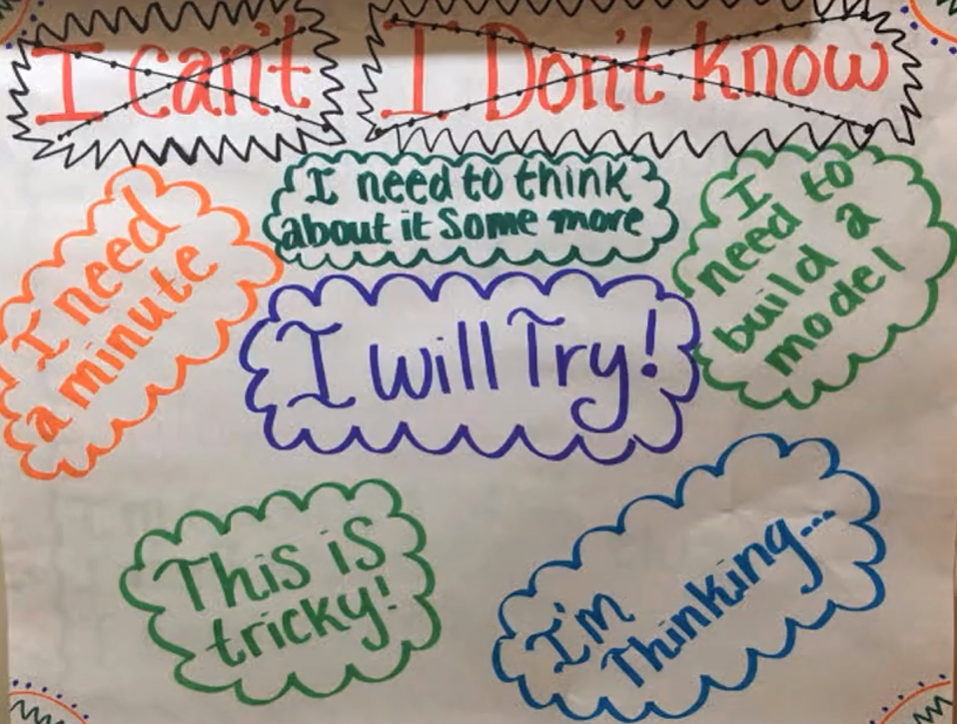 I can't
I Don't know
I need to think
about it Some more
I need
a minute
I
need to
build a
model
I will Try!
This is
tricky!
I'm
Thinking...